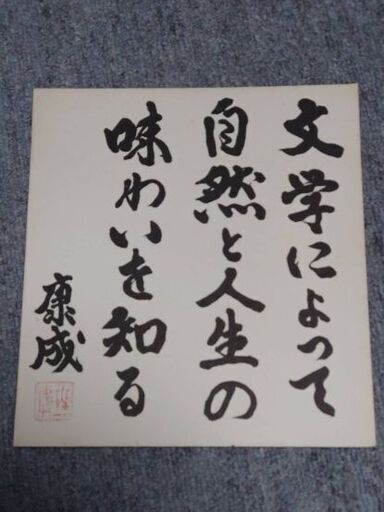 文学によって
自然と人生の
味わいを知る
康成